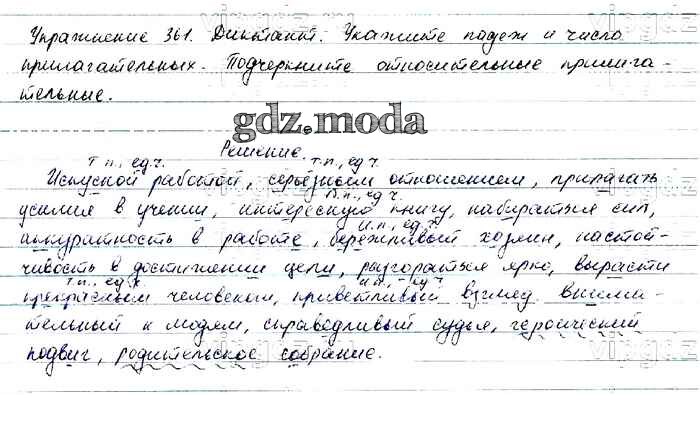 Упражнение 361. Диктант. Укажите падеж и число
прилагательных. Подчеркните относительные прилага-
тельные.
gdz.moda
Решение.
Т.п., ед.ч. т.п., ед.ч.
Искусной работой, серьёзным отношением, прилагать
В.п., ед.ч.
усилия в учении, интересную книгу, набираться сил,
И.п., ед.ч.
аккуратность в работе, бережливый хозяин, настой-
чивость в достижении цели, разгораться ярко, вырасти
Т.п., ед.ч. И.п., ед.ч.
прекрасным человеком, приветливый взгляд внима-
тельный к людям, справедливый судья, героический
подвиг, родительское собрание.